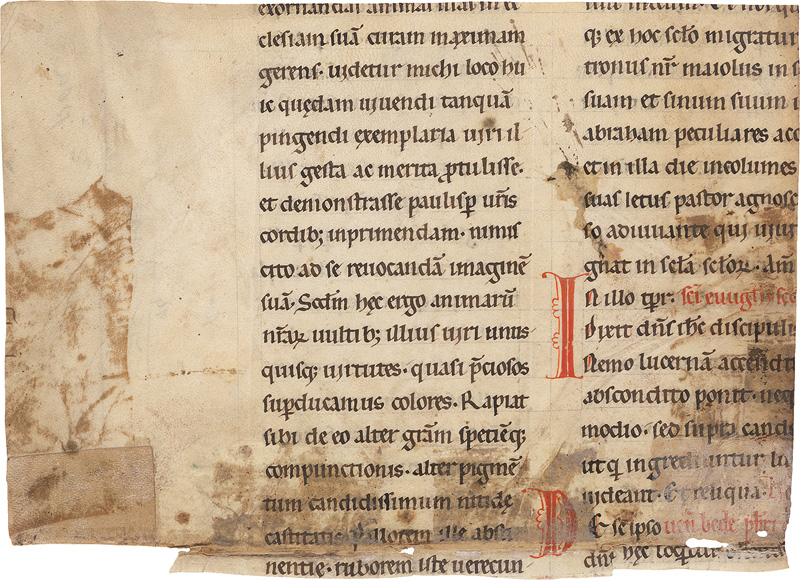 exornandi animai
clesiam suā curam maximam
gerens· uidetur michi loco hu
ic quędam uiuendi tanquā
pingendi exemplaria uiri il
lius gesta ac merita ꝓtulisse·
et demonstrasse paulisꝑ ur̄is
cordib; inprimendam· nimis
cito ad se reuocandā imaginē
suā· Scd̄m hęc ergo animarū
nr̄aꝝ uultib; illius uiri unus
quisq; uirtutes· quasi p̄ciosos
suꝑducamus colores· Rapiat
sibi de eo alter grām speciēq;
compunctionis· alter pigmē
tum candidissimum nitidę
castitatis pallorem ille absti
nentię· ruborem iste uerecun
q; ex hoc sclō migratur
tronus nr̄ maiolus in s
suam et sinum suum
abraham peculiares acc
et in illa die incolumes
suas letus pastor agnosc
so adiuuante qui uiuit
gnat in sclā sclōꝝ· Am̄
IN illo tꝑr· sci euuglii sec
Dixit dn̄s ihc̄ discipulis
Nemo lucernā accendit
abscondito ponit· neq
modio· sed supra cande
ut q̄ ingrediuntur lu
uideant· Et reliqua·
DE se ipso uen̄ bede pb̄ri
dn̄s hęc loq̄tur